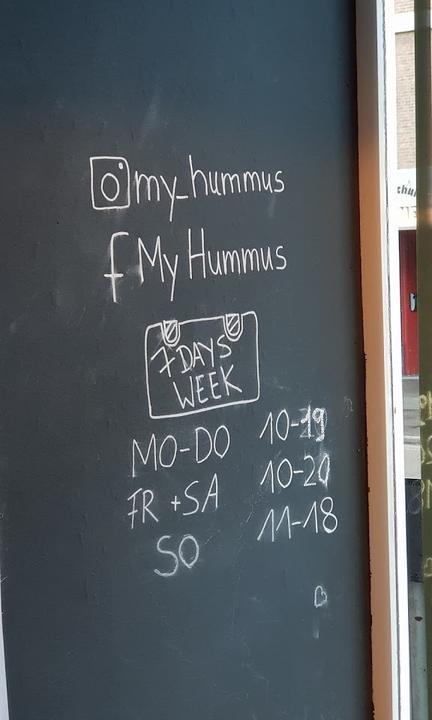 my_hummus
My Hummus
7 DAYS
WEEK
MO-DO 10-19
FR + SA 10-20
SO 11-18